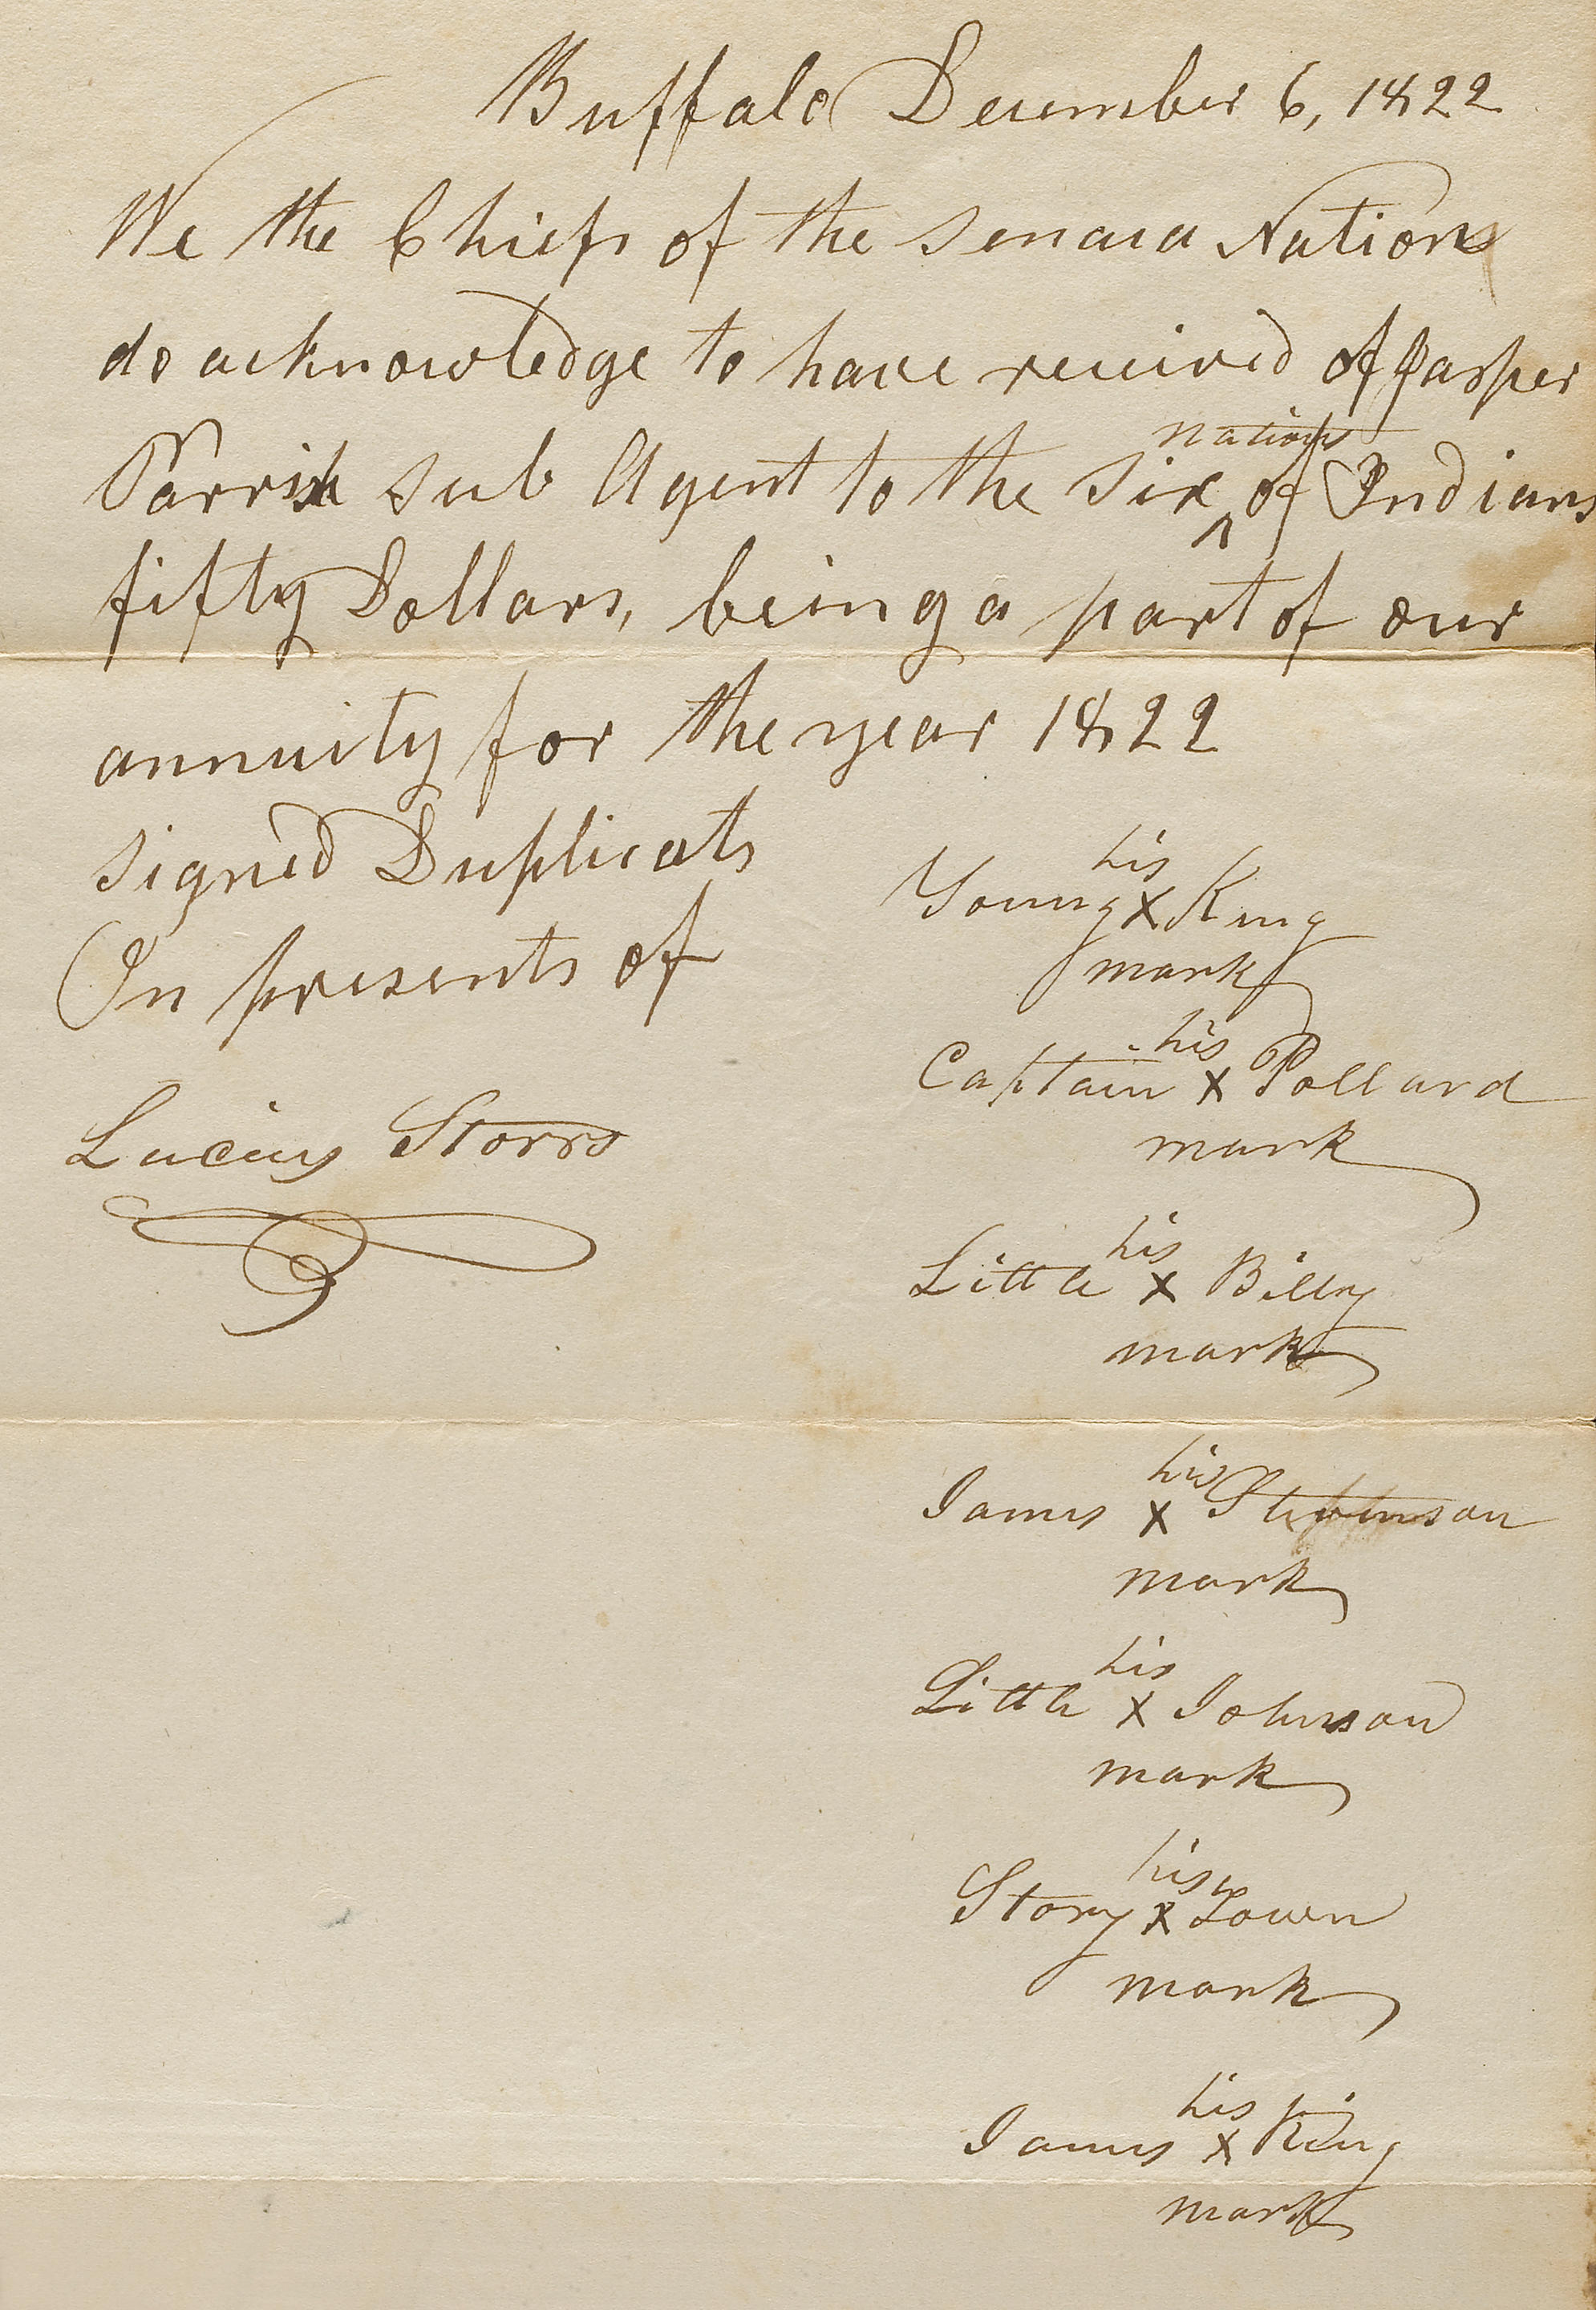 Buffalo December 6, 1822
We the Chiefs of the Senaca Nation
do acknowledge to have received of Jasper
nations
Parrish sub Agent to the Six ^ of Indians
fifty Dollars, being a part of our
annuity for the year 1822
signed Duplicats
In presents of
Lucius Storrs
his
Young X King
mark
his
Captain X Pollard
mark
his
Little X Billy
mark
his
James X Stephenson
mark
his
Little X Johnson
mark
his
Story X Town
mark
his
James X King
mark